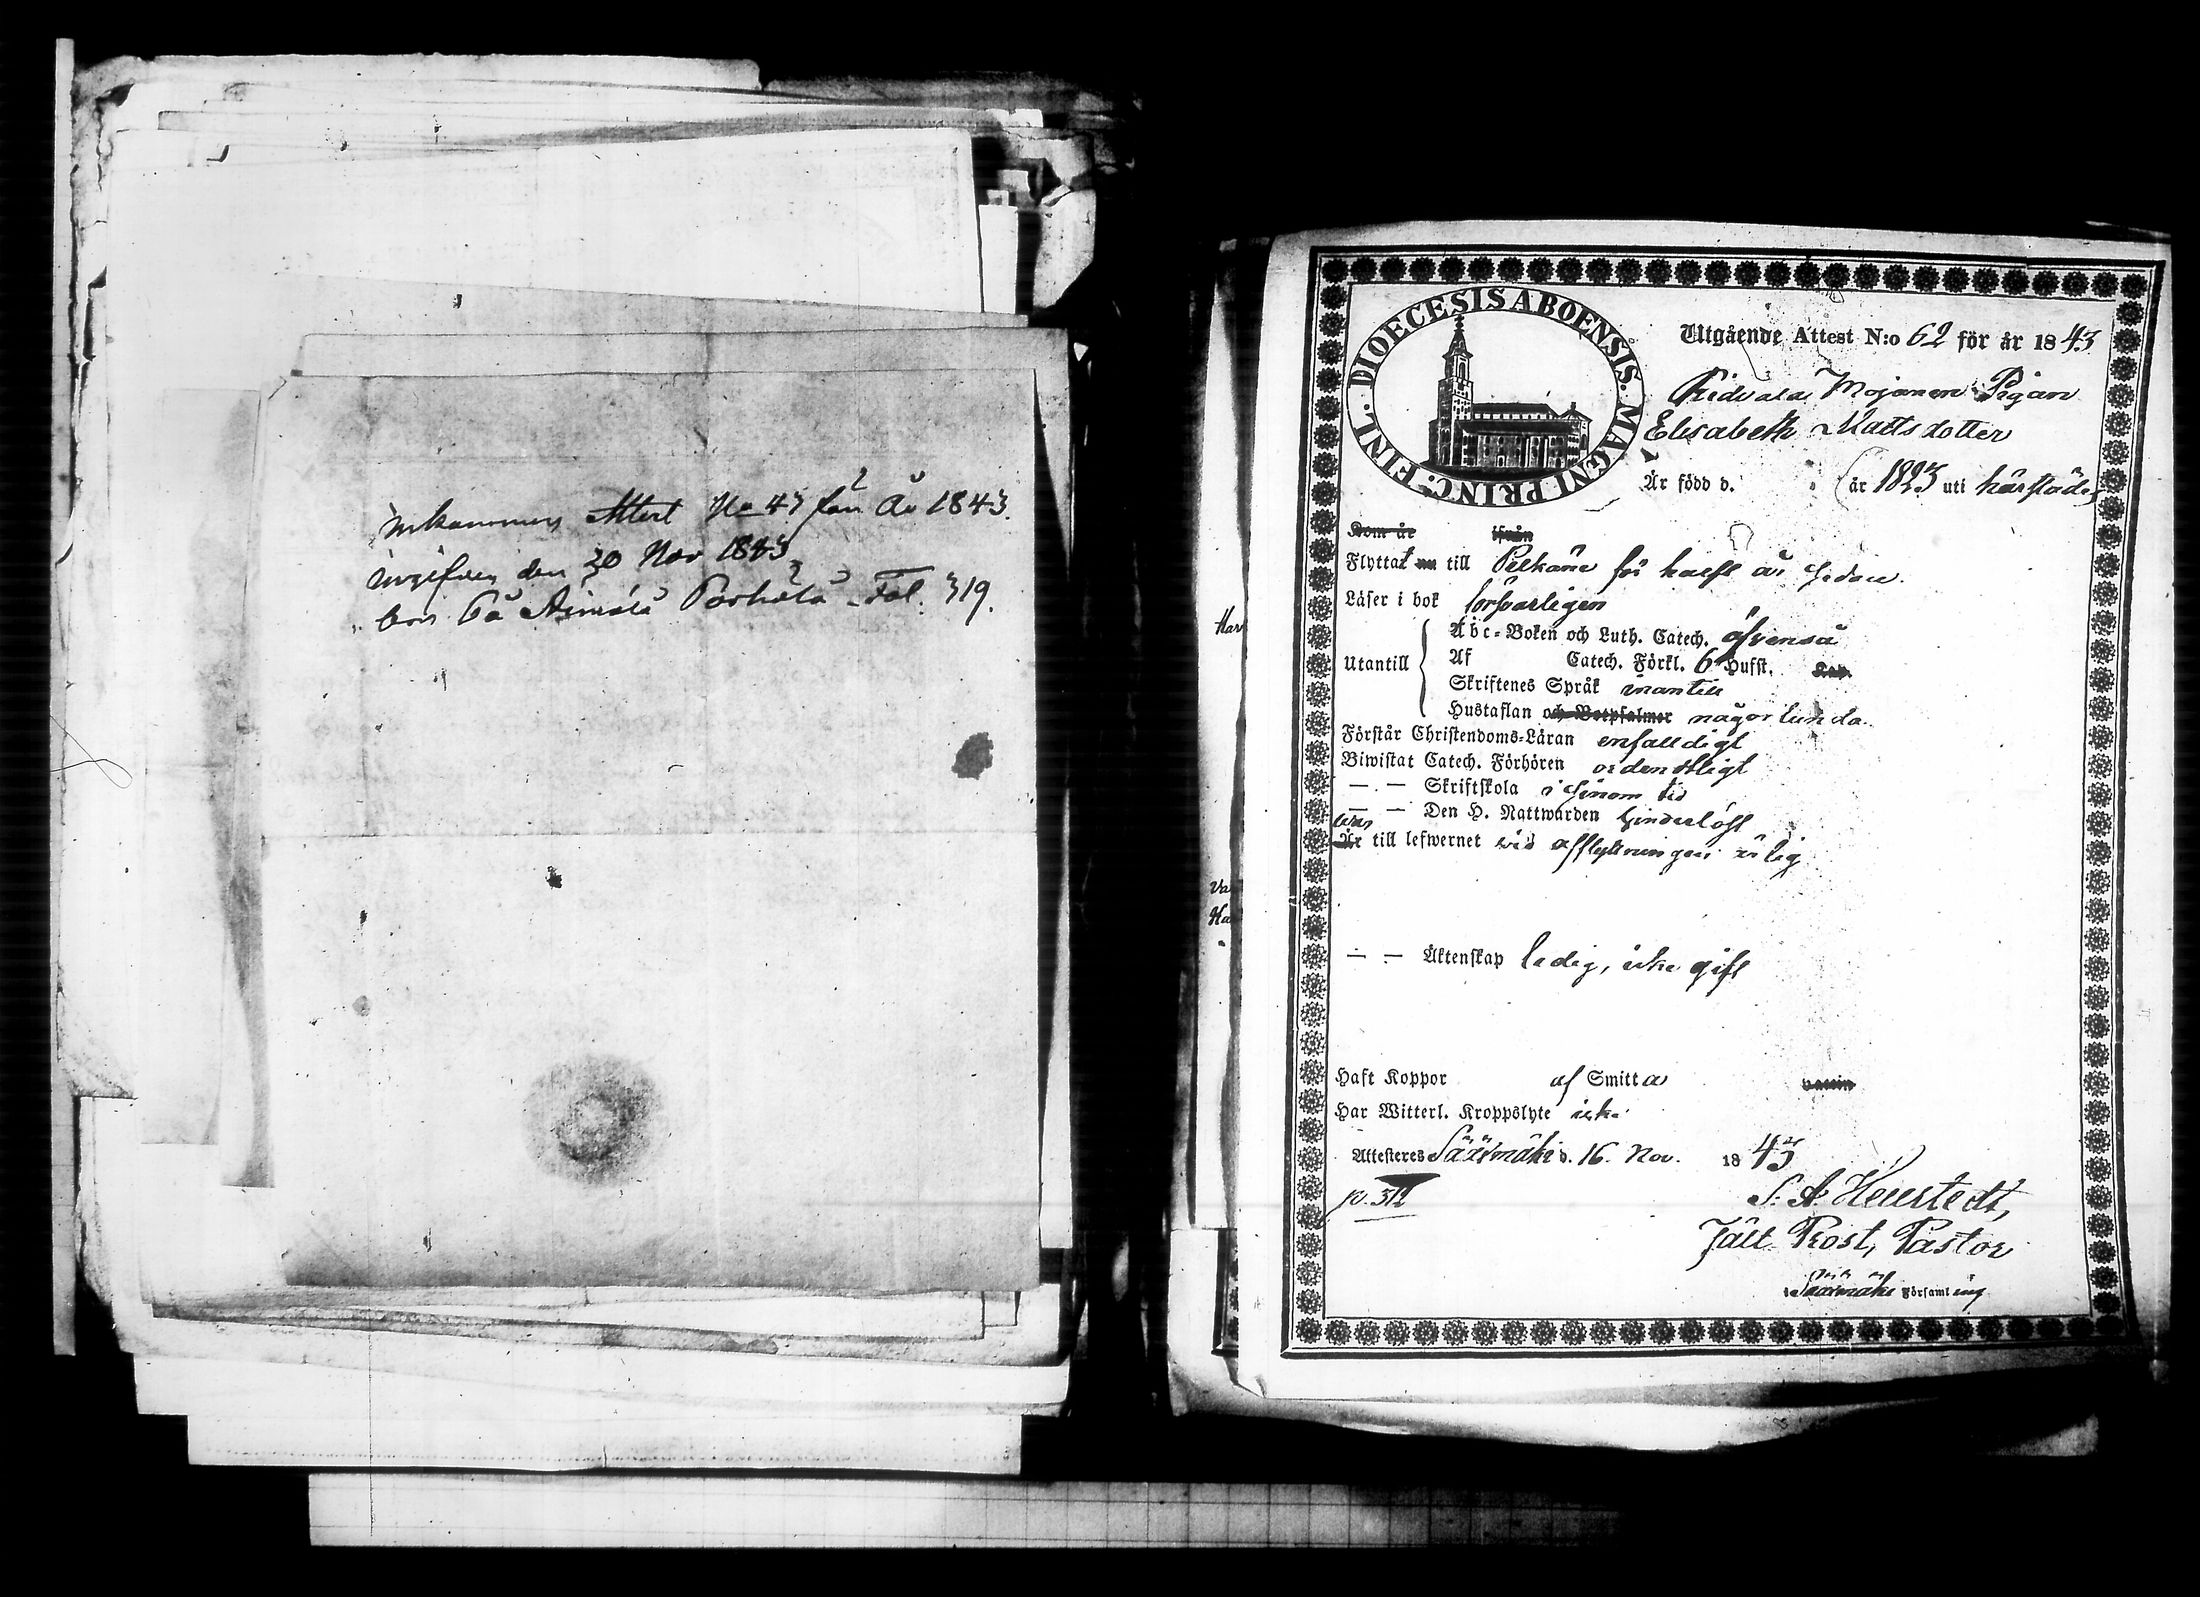 Inkommen Attest No 47 för År 1843.
ingifven den 20 Nov 1843
bor På Porhola Fol. 319.
DIOECESIS ABOENSIS. MAGNI PRINC. FINL.
Utgående Attest N:o 62 för år 1843
Mojanen Pigan
Elisabeth Mattsdotter
Är född d. år 1823 uti härstädes
Kom år ifrån
Flyttat till Pelkäne för halft år sedan.
Läser i bok försvarligen
Utantill
Abc-Boken och Luth. Catech. äfvenså
Af Catech. Förkl. 6 Hufst. Kap.
Skriftenes Språk innantill
Hustaflan och Botpsalmer någorlunda
Förstår Christendoms-Läran enfaldigt
Biwistat Catech. Förhören ordentligt
— — Skriftskola i sinom tid
— — Den H. Nattwarden hinderlöst
war
Är till lefwernet vid afflyttningen ärlig
— — Äktenskap ledig, icke gift
Haft Koppor af Smitta vaccin
Har Witterl. Kroppslyte icke
Attesteres Sääxmäki d. 16. Nov. 1843
p. 312
S. A.
Fält Prost, Pastor
i Sääxmäki Församling
Har